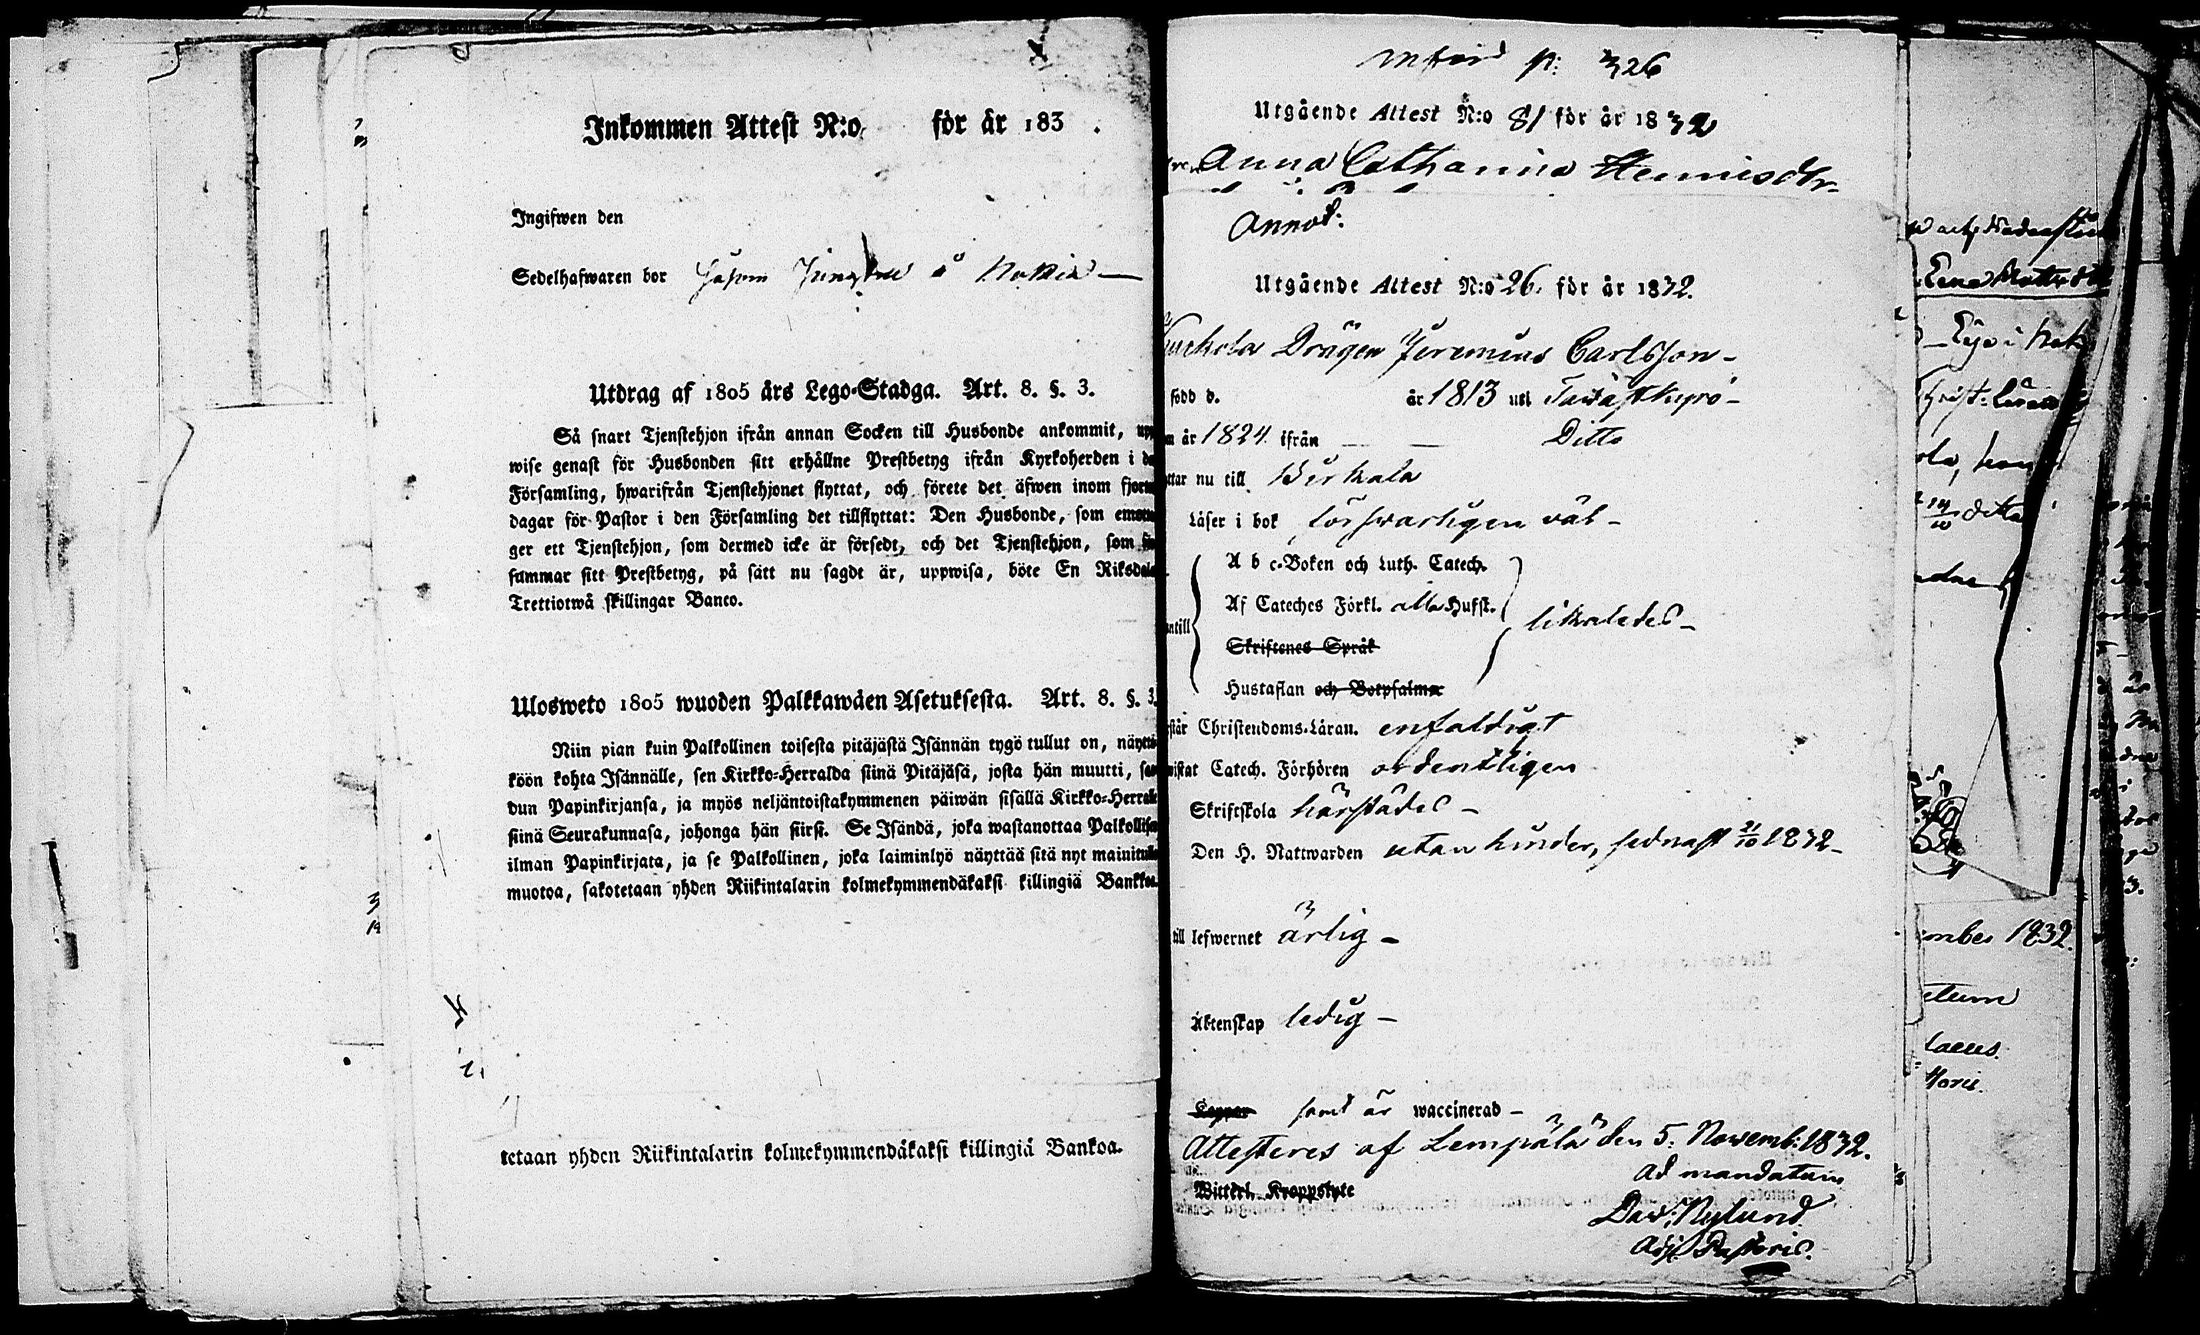 Inkommen Attest N:o för år 183 .
Ingifwen den
Sedelhafwaren bor å Nokia —
Utdrag af 1805 års Lego-Stadga. Art. 8. §. 3.
Så snart Tjenstehjon ifrån annan Socken till Husbonde ankommit, upp
wise genast för Husbonden sitt erhållne Prestbetyg ifrån Kyrkoherden i de
Församling, hwarifrån Tjenstehjonet flyttat, och förete det äfwen inom fjorto
dagar för Pastor i den Församling det tillflyttat: Den Husbonde, som emotta
ger ett Tjenstehjon, som dermed icke är försedt, och det Tjenstehjon, som för
summar sitt Prestbetyg, på sätt nu sagdt är, uppwisa, böte En Riksdale
Trettiotwå skillingar Banco.
Ulosweto 1805 wuoden Palkkawäen Asetuksesta. Art. 8. §. 3.
Niin pian kuin Palkollinen toisesta pitäjästä Isännän tygö tullut on, näyttä
köön kohta Isännälle, sen Kirkko-Herralda siinä Pitäjäsä, josta hän muutti, saa
dun Papinkirjansa, ja myös neljäntoistakymmenen päiwän sisällä Kirkko-Herrale
siinä Seurakunnasa, johonga hän siirsi. Se Isändä, joka wastanottaa Palkollisen
ilman Papinkirjata, ja se Palkollinen, joka laiminlyö näyttää sitä nyt mainitulla
muotoa, sakotetaan yhden Riikintalarin kolmekymmendäkaksi killingiä Bankoa.
tetaan yhden Riikintalarin kolmekymmendäkaksi killingiä Bankoa.
p: 326
Utgående Attest N:o 81 för år 1832
Anna Catharina Henricsdtr
Annot:
Utgående Attest N:o 26. för år 1832.
Kurkola Drängen Jeremias Carlsson -
född d. år 1813 uti Tavastkyrö -
år 1824. ifrån — — Ditto
ttar nu till Birkala
Läser i bok försvarligen väl -
A b c-Boken och Luth. Catech.
Af Cateches Förkl. alla Hufst.
ntill likaledes -
Skriftenes Språk
Hustaflan och Botpsalmer
står Christendoms-Läran. enfaldigt
wistat Catech. Förhören ordentligen
Skriftskola härstädes -
Den H. Nattwarden utan hinder, sednast 21/10 1832 -
till lefwernet ärlig -
Äktenskap ledig -
Koppor samt är waccinerad -
Attesteres af Lempälä den 5. Novemb: 1832.
Ad mandatum
Wittert. Kroppslyte
Dav: Nylund
Adj. Pastoris.
Eena
Eye i
ditta
mber 1832.